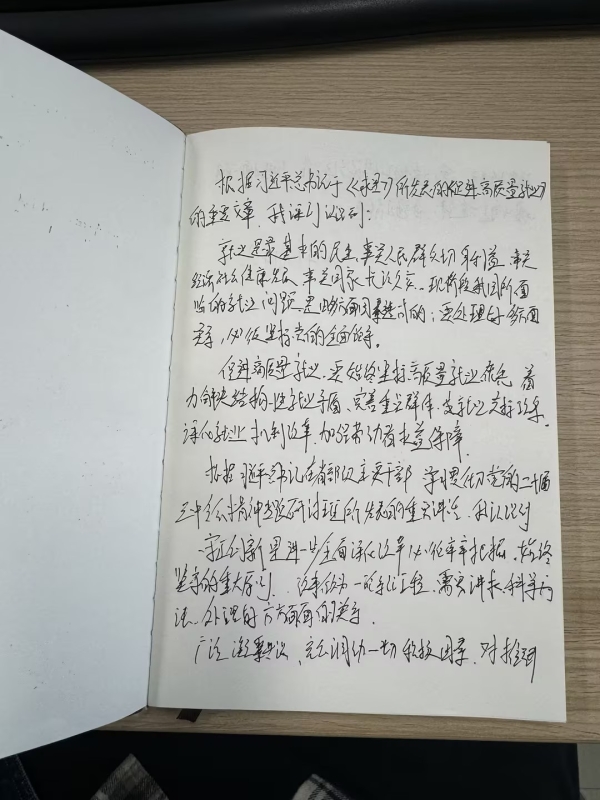 根据习近平总书记于《求是》所发表的《促进高质量就业》
的重要文章，我深刻认识到：
就业是最基本的民生，事关人民群众切身利益，事关
经济社会健康发展，事关国家长治久安。现阶段我国所面
临的就业问题，是由多方面因素造成的；要处理好多方面
关系，必须坚持党的全面领导。
促进高质量就业，要始终坚持高质量就业 着
力解决结构性就业矛盾、完善重点群体 就业支持政策、
深化就业 机制改革，加强劳动者权益保障
根据习近平总书记在省部级主要干部 学习贯彻党的二十届
三中全会精神专题研讨班所发表的重要讲话，我认识到
守正创新是进一步全面深化改革必须牢牢把握、始终
坚守的重大原则。改革作为一项系统工程，需要讲求科学方
法、处理好方方面面的关系
广泛凝聚共识、充分调动一切积极因素，对推动